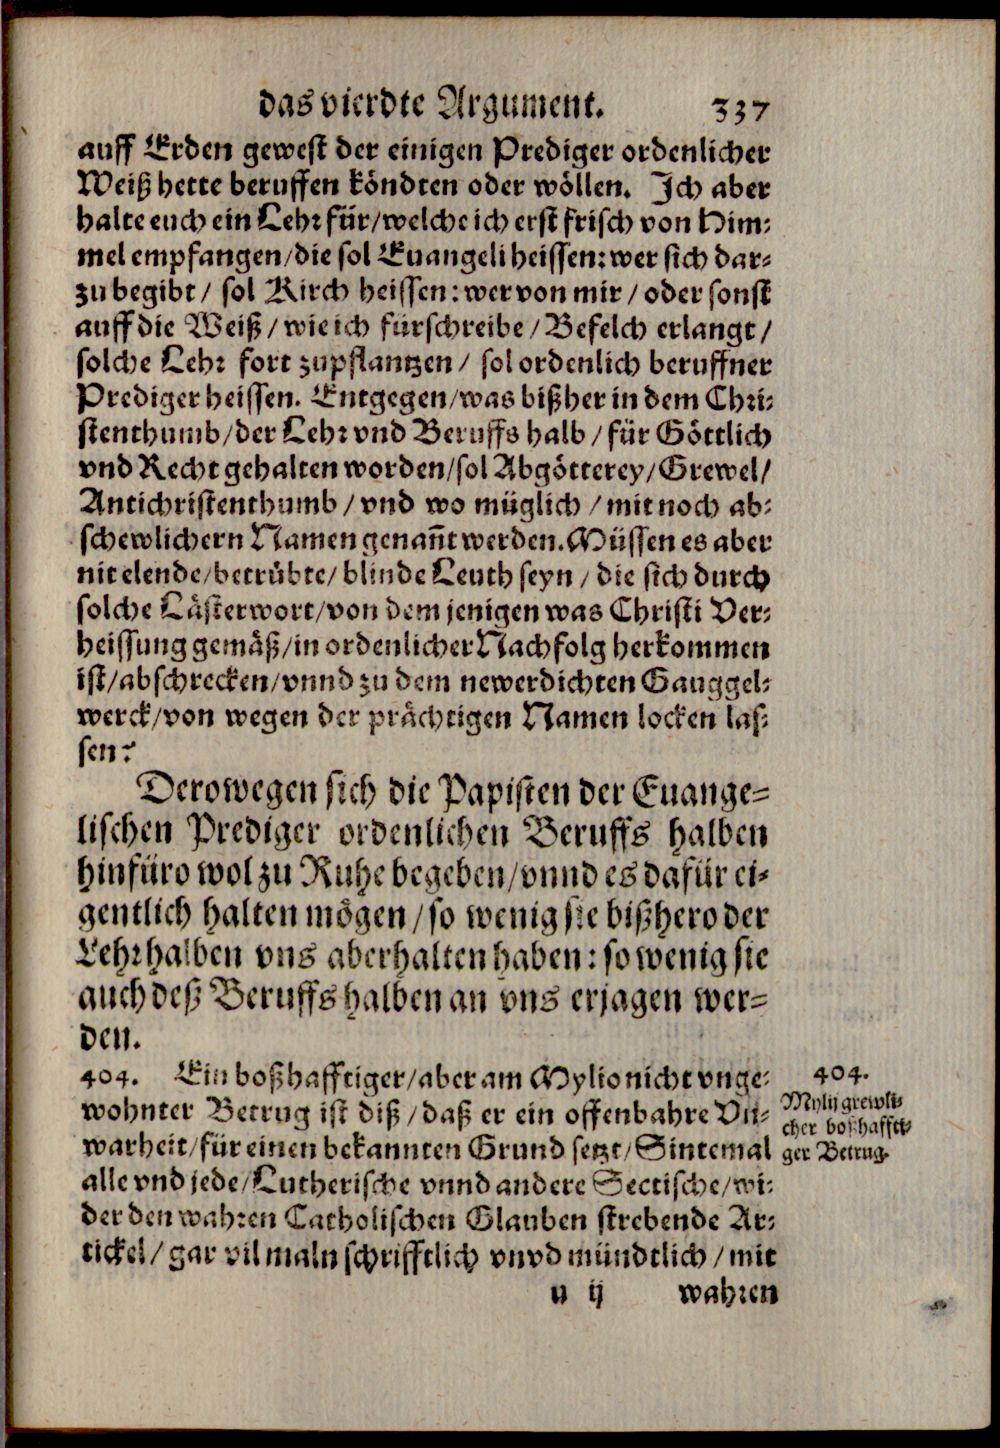 das vierdte Argument. 337
auff Erden gewest der einigen Prediger ordenlicher
Weiß hette beruffen köndten oder wöllen. Ich aber
halte euch ein Lehr für/welche ich erst frisch von Him-
mel empfangen/die sol Euangeli heissen: wer sich dar-
zu begibt/ sol Kirch heissen: wer von mir/ oder sonst
auff die Weiß/ wie ich fürschreibe/ Befelch erlangt/
solche Lehr fort zupflantzen/ sol ordenlich beruffner
Prediger heissen. Entgegen/was bißher in dem Chri-
stenthumb/der Lehr vnd Beruffs halb/ für Göttlich
vnd Recht gehalten worden/sol Abgötterey/Grewel/
Antichristenthumb/ vnd wo müglich/ mit noch ab-
schewlichern Namen genañt werden. Müssen es aber
nit elende/betrübte/ blinde Leuth seyn/ die sich durch
solche Lästerwort/von dem jenigen was Christi Ver-
heissung gemäß/in ordenlicher Nachfolg herkommen
ist/abschrecken/vnnd zu dem newerdichten Gauggel-
werck/von wegen der prächtigen Namen locken las-
sen?
Derowegen sich die Papisten der Euange-
lischen Prediger ordenlichen Beruffs halben
hinfüro wol zu Ruhe begeben/vnnd es dafür ei-
gentlich halten mögen/so wenig sie bißhero der
Lehr halben vns aberhalten haben: so wenig sie
auch deß Beruffs halben an vns erjagen wer-
den.
404. Ein boßhafftiger/aber am Mylio nicht vnge-
wohnter Betrug ist diß/ daß er ein offenbahre Vn-
warheit/für einen bekannten Grund setzt/Sintemal
alle vnd jede/Lutherische vnnd andere Sectische/wi-
der den wahren Catholischen Glauben strebende Ar-
tickel/ gar vilmaln schrifftlich vnvd mündtlich/ mit
404.
Mylij grewli-
cher boßhaffti-
ger Betrug.
u ij wahren